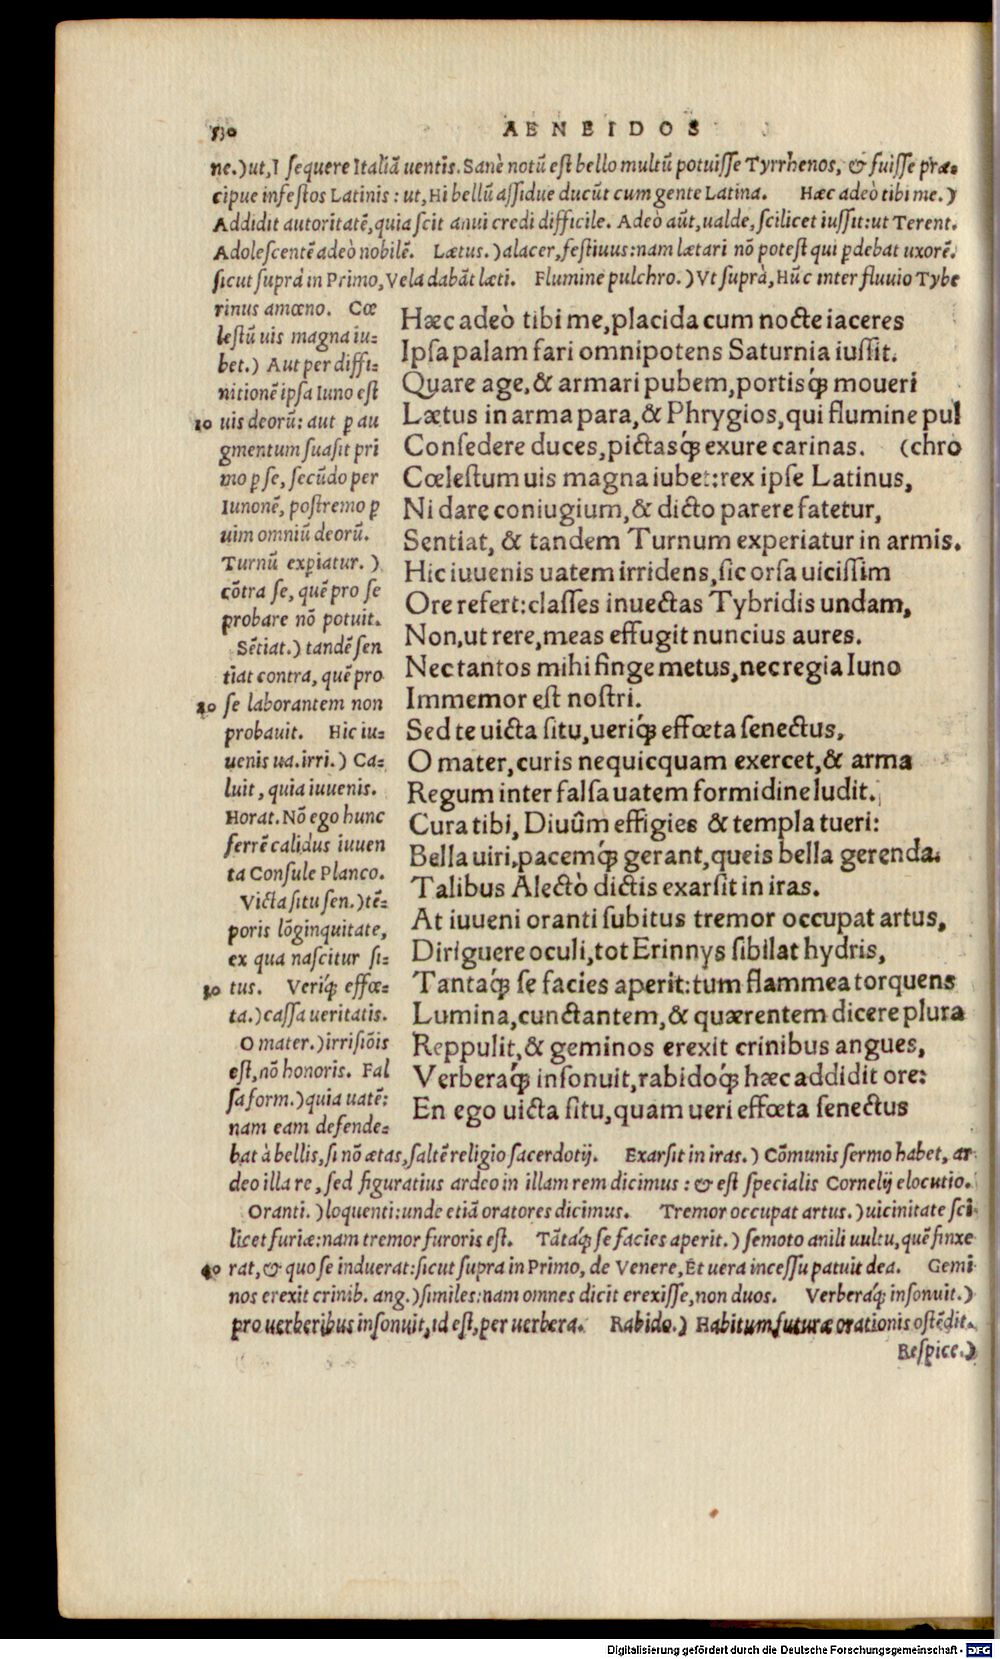 530
AENEIDOS
ne.) ut, I ſequere Italiã uentis. Sanè notũ eſt bello multũ potuiſſe Tyrrhenos, & fuiſſe præ=
cipue infeſtos Latinis : ut, Hi bellũ aſſidue ducũt cum gente Latina. Hæc adeò tibi me.)
Addidit autoritatẽ, quia ſcit anui credi difficile. Adeò aũt, ualde, ſcilicet iuſſit: ut Terent.
Adoleſcentẽ adeò nobilẽ. Lætus.) alacer, feſtiuus: nam lætari nõ poteſt qui ꝑdebat uxorẽ.
ſicut ſuprà in Primo, Vela dabãt læti. Flumine pulchro.) Vt ſuprà, Hũc inter fluuio Tybe
rinus amœno. Cœ
leſtũ uis magna iu=
bet.) Aut per diffi=
nitionẽ ipſa Iuno eſt
10 uis deorũ: aut ꝑ au
gmentum ſuaſit pri
mo ꝑ ſe, ſecũdo per
Iunonẽ, poſtremo ꝑ
uim omniũ deorũ.
Turnũ exꝑiatur.)
cõtra ſe, quẽ pro ſe
probare nõ potuit.
Sẽtiat.) tandẽ ſen
tiat contra, quẽ pro
20 ſe laborantem non
probauit. Hic iu=
uenis ua. irri.) Ca=
luit, quia iuuenis.
Horat. Nõ ego hunc
ferrẽ calidus iuuen
ta Conſule Planco.
Victa ſitu ſen.) tẽ=
poris lõginquitate,
ex qua naſcitur ſi=
30 tus. Veriq́ꝫ effœ=
ta.) caſſa ueritatis.
O mater.) irriſiõis
eſt, nõ honoris. Fal
ſa form.) quia uatẽ:
nam eam defende=
Hæc adeò tibi me, placida cum nocte iaceres
Ipſa palam fari omnipotens Saturnia iuſſit.
Quare age, & armari pubem, portisq́ꝫ moueri
Lætus in arma para, & Phrygios, qui flumine pul
Conſedere duces, pictasq́ꝫ exure carinas. (chro
Cœleſtum uis magna iubet: rex ipſe Latinus,
Ni dare coniugium, & dicto parere fatetur,
Sentiat, & tandem Turnum experiatur in armis.
Hic iuuenis uatem irridens, ſic orſa uiciſſim
Ore refert: claſſes inuectas Tybridis undam,
Non, ut rere, meas effugit nuncius aures.
Nec tantos mihi finge metus, nec regia Iuno
Immemor eſt noſtri.
Sed te uicta ſitu, ueriq́ꝫ effœta ſenectus,
O mater, curis nequicquam exercet, & arma
Regum inter falſa uatem formidine ludit.
Cura tibi, Diuûm effigies & templa tueri:
Bella uiri, pacemq́ꝫ gerant, queis bella gerenda.
Talibus Alectò dictis exarſit in iras.
At iuueni oranti ſubitus tremor occupat artus,
Diriguere oculi, tot Erinnys ſibilat hydris,
Tantaq́ꝫ ſe facies aperit: tum flammea torquens
Lumina, cunctantem, & quærentem dicere plura
Reppulit, & geminos erexit crinibus angues,
Verberaq́ꝫ inſonuit, rabidoq́ꝫ hæc addidit ore:
En ego uicta ſitu, quam ueri effœta ſenectus
bat à bellis, ſi nõ ætas, ſaltẽ religio ſacerdotij. Exarſit in iras.) Cõmunis ſermo habet, ar
deo illa re, ſed figuratius ardeo in illam rem dicimus : & eſt ſpecialis Cornelij elocutio.
Oranti.) loquenti: unde etiã oratores dicimus. Tremor occupat artus.) uicinitate ſci
licet furiæ: nam tremor furoris eſt. Tãtaq́ꝫ ſe facies aperit.) ſemoto anili uultu, quẽ finxe
40 rat, & quo ſe induerat: ſicut ſupra in Primo, de Venere, Et uera inceſſu patuit dea. Gemi
nos erexit crinib. ang.) ſimiles: nam omnes dicit erexiſſe, non duos. Verberáq́ꝫ inſonuit.)
pro uerberibus inſonuit, id eſt, per uerbera. Rabido.) Habitum futuræ orationis oſtẽdit.
Reſpice.)
Digitalisierung gefördert durch die Deutsche Forschungsgemeinschaft - DFG